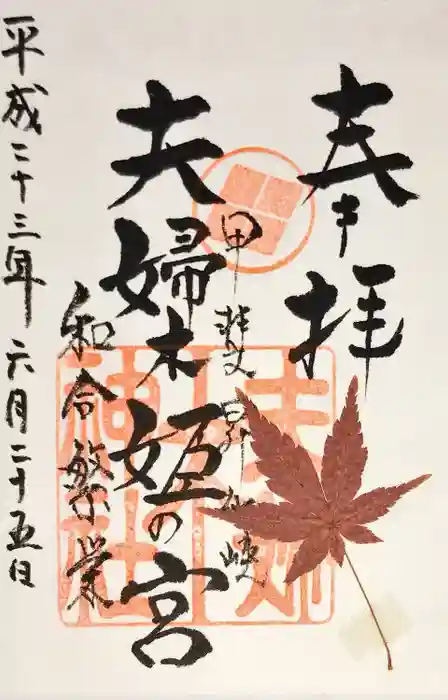 奉拝
甲斐 昇仙峡
夫婦木姫の宮
和合繁栄
平成二十三年六月二十五日